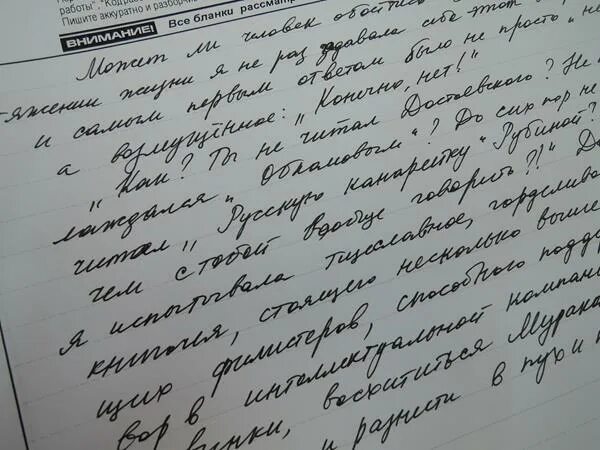 работы". "Кодрa
Пишите аккуратно и разборчи
ВНИМАНИЕ! Все бланки рассматр
Может ли человек обойтись
тяжении жизни я не раз задавала себе этот
и самым первым ответом было не просто "не
а возмущённое: "Конечно, нет!"
"Как? Ты не читал Достоевского? Не н
лаждался "Обломовым"? До сих пор не
читал "Русскую канарейку" Рубиной?
чем с тобой вообще говорить?!" Да
я испытывала тщеславное, горделиво
книгочея, стоящего несколько выше
щих филистеров, способного поддер
вор в интеллектуальной компани
винки, восхититься Мурака
и разнести в пух и п